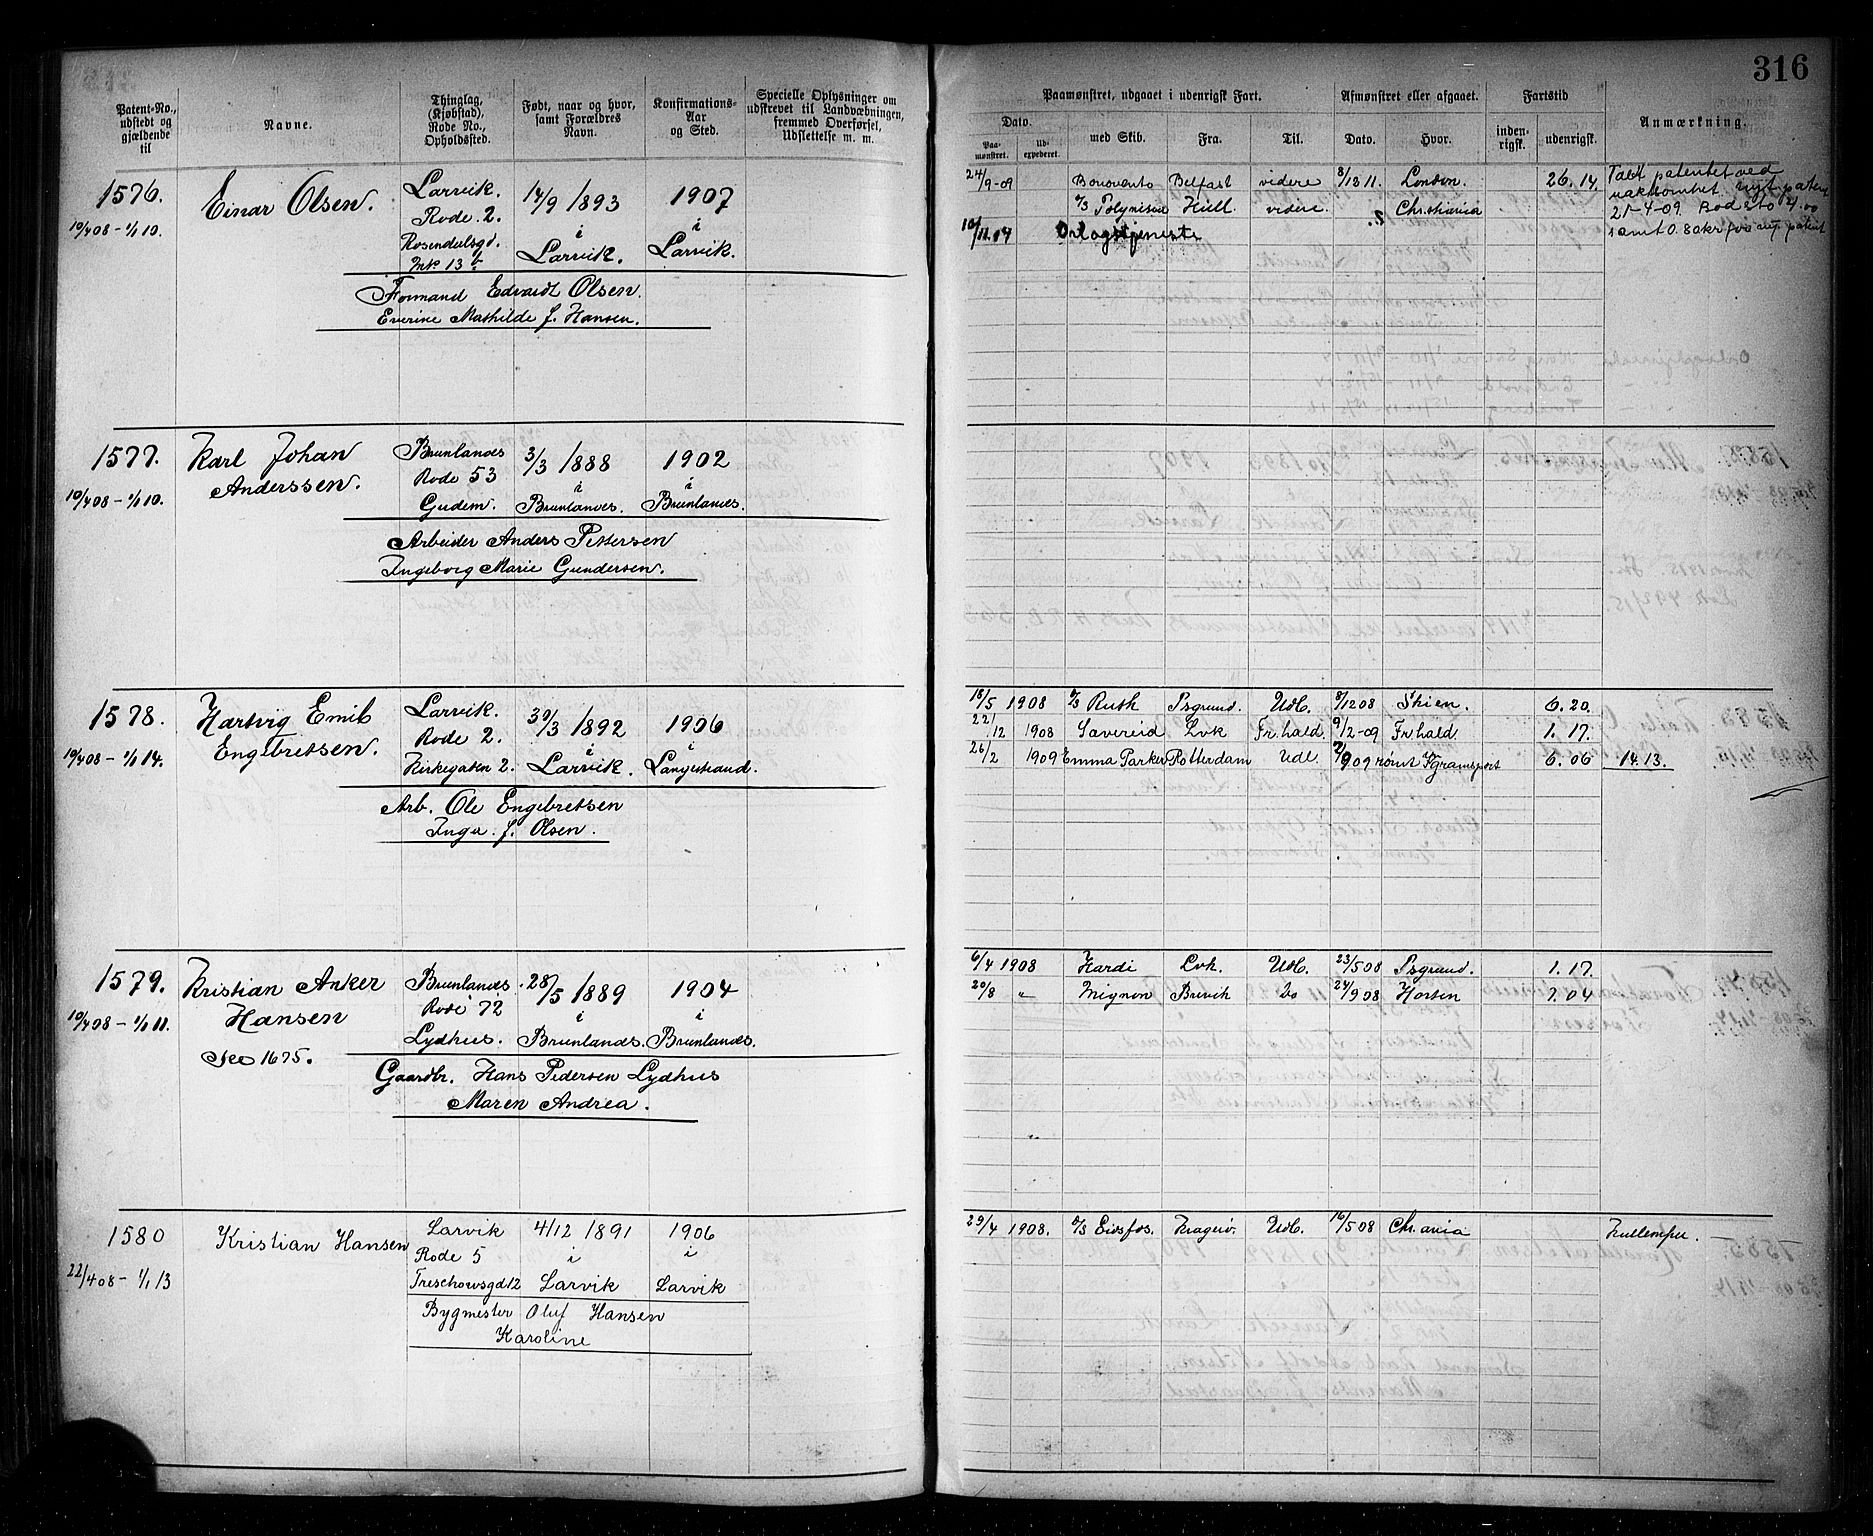 316
Patent-No., udstedt og gjældende til
Navne.
Thinglag, (Kjøbstad), Rode No., Opholdssted.
Født, naar og hvor, samt Forældres Navn.
Konfirmations-Aar og Sted.
Specielle Oplysninger om udskrevet til Landvædningen, fremmed Overførsel, Udslettelse m. m.
Paamønstret, udgaaet i udenrigsk Fart.
Afmønstret eller afgaaet.
Fartstid
Anmærkning.
Dato.
Paa-mønstret.
Ud-expederet.
med Skib.
Fra.
Til.
Dato.
Hvor.
inden-rigsk.
udenrigsk.
1576. Einar Olsen. Larvik. 14/9 1893 1907
10/4 08 - 1/1 10. Rode 2. i i
Rosendalsgd. Larvik. Larvik.
Mk 13 b
Formand Edvardt Olsen.
Everine Mathilde f. Hansen.
24/9-09 Bonovento Belfast videre 8/12 11. London. 26.14.
S/S Polynisad Hull videre. Christiania
10/11 14 Orlogstjeneste
Tabt patentet ved
nyt patent
21-4-09. Bod & to 4.00
samt 0.80 kr for nyt patent
1577. Karl Johan Brunlanes 3/3 1888 1902
Anderssen. Rode 53 i i
10/4 08 - 1/1 10. Gudem. Brunlanes. Brunlanes.
Arbeider Anders Pettersen
Ingeborg Marie Gundersen.
1578. Hartvig Emil Larvik. 30/3 1892 1906
Engebretsen. Rode 2. i i
10/4 08 - 1/1 14. Kirkegaten 2. Larvik. Langestrand.
Arb. Ole Engebretsen
Inga f. Olsen.
18/5 1908 S/S Ruth Psgrund. Udl. 8/12 08 Skien. 6.20.
22/12 1908 Savereid Lvk Fr.hald. 9/2-09 Fr.hald 1.17.
26/2 1909 Emma Parker Rotterdam Udl. 2/9 09 rømt 6.06 14.13.
1579. Kristian Anker Brunlanes 28/5 1889 1904
Hansen Rode 72 i i
10/4 08 - 1/1 11. Lydhus. Brunlands. Brunlands.
See 1675.
Gaardbr. Hans Pedersen Lydhus
Maren Andrea.
6/4 1908 Hardi Lvk. Udl. 23/5 08 Psgrund. 1.17.
20/8 " Mignon Brevik Do 24/9 08 Horten 1.04
1580 Kristian Hansen Larvik 4/12 1891 1906
Rode 5 i i
22/4 08 - 1/1 13 Treschowsgd 12 Larvik Larvik
Bygmester Oluf Hansen
Karoline
29/4 1908. S/S Eidsfos. Kragerø. Udl. 16/5 08 Chr.ania Kullemper.